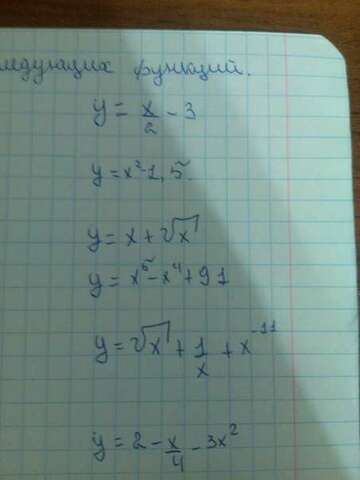 ледующих функций.
y = x/2 - 3
y = x² - 1,5.
y = x + √x
y = x⁵ - x⁴ + 91
y = √x + 1/x + x⁻¹¹
y = 2 - x/4 - 3x²